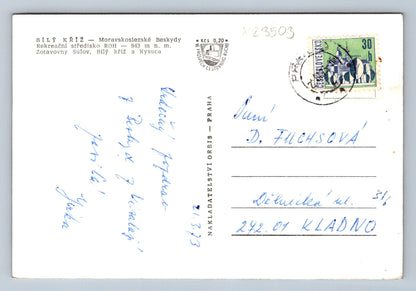 BÍLÝ KŘÍŽ — Moravskoslezské Beskydy
Rekreační středisko ROH — 943 m n. m.
Zotavovny Súľov, Bílý Kříž a Kysuca
Kčs 0,20
X23503
ČESKOSLOVENSKO
30 h
NAKLADATELSTVÍ ORBIS — PRAHA
Srdečný pozdrav
z Beskyd
Jarila
Jirka
21.3.73
Paní
D. FUCHSOVÁ
Dělnická ul.
272 01 KLADNO